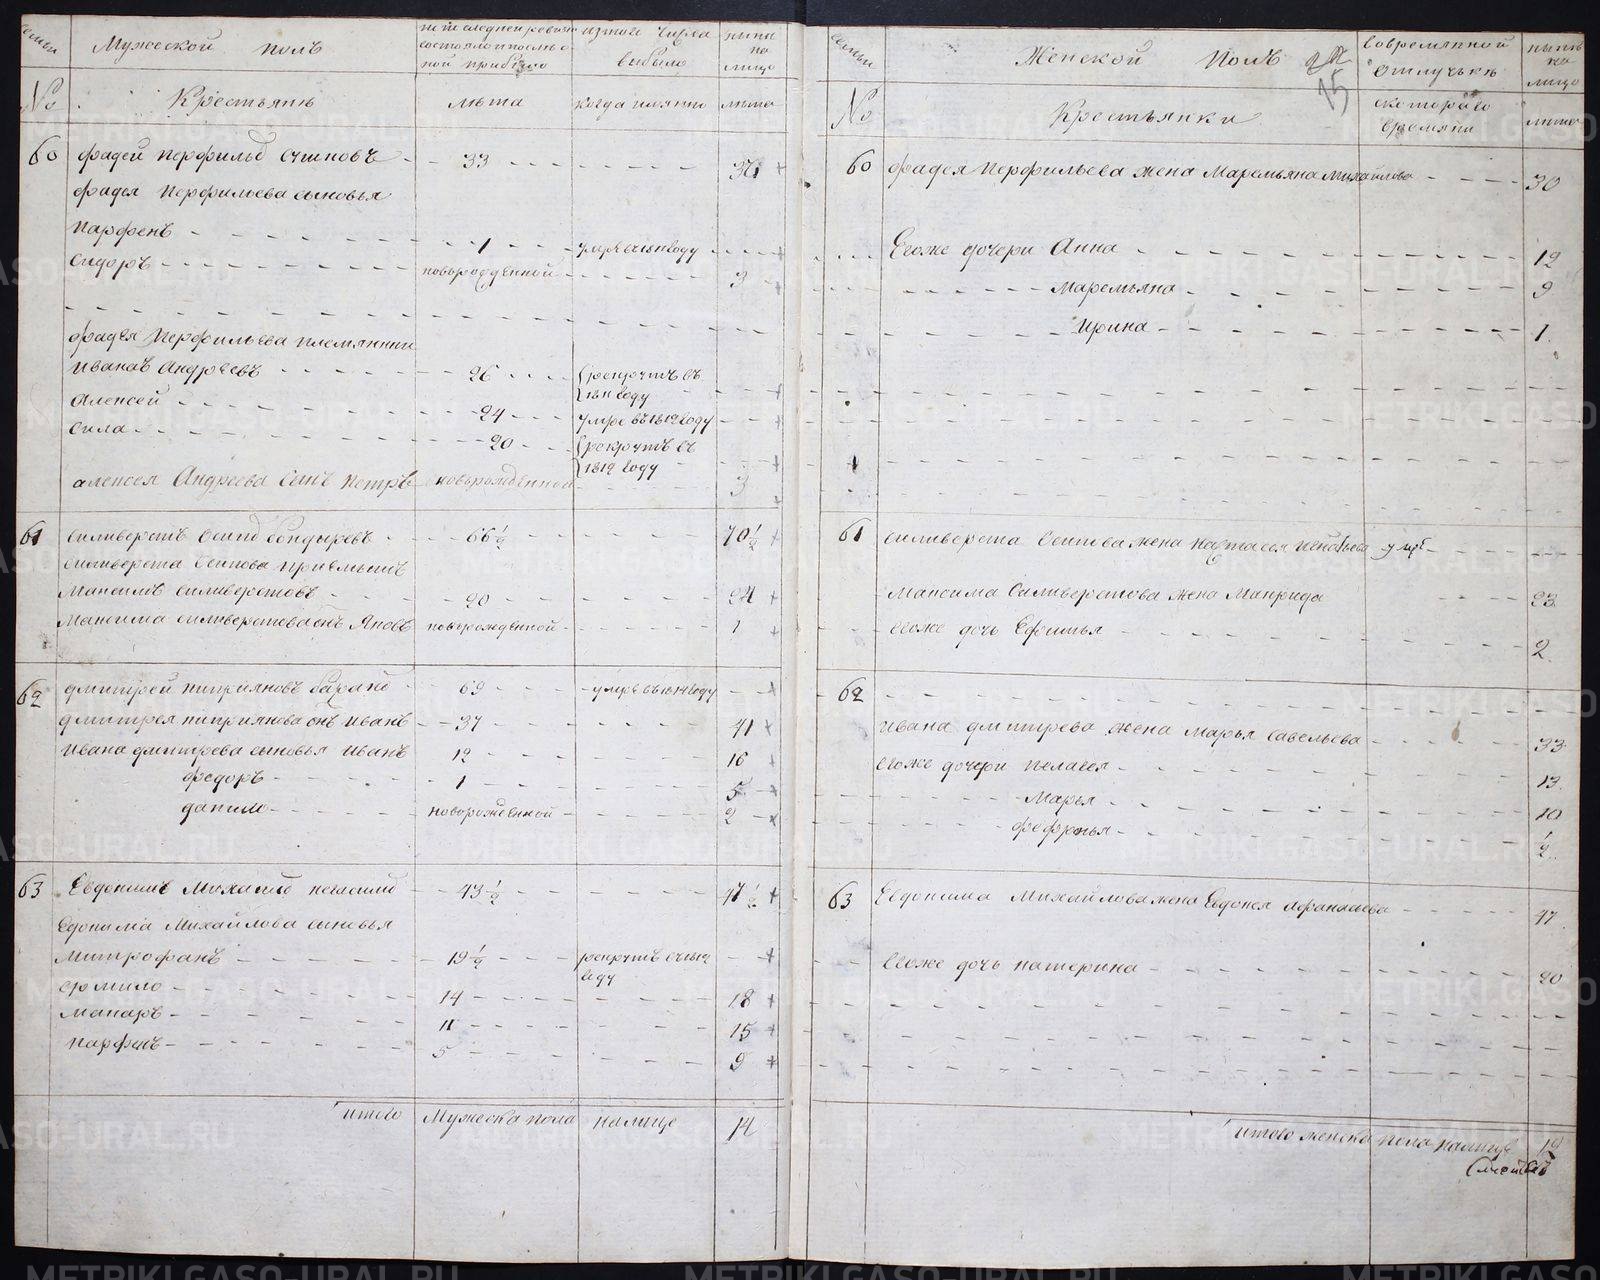 семьи
Мужеской полъ
по последней ревизи
состояло и после о
ной прибыло
изтого числа
выбыло
ныне
на
лицо
№
Крестьяне
лета
когда имянно
лета
60 Фадей Перфильев 33
Фадея Перфильева сыновья
Парфенъ 1
Сидоръ новорожденной 3
Фадея Перфильева племянни
Иванъ Андреевъ 26 рекрутъ въ
1811 году
Алексей 24 умре въ 1812 году
Сила 20 рекрутъ въ
1812 году
Алексея Андреева сынъ Петръ новорожденной 3
61 Силиверстъ Осипов Бондыревъ 66 1/2 70 1/2
Силиверста Осипова приемышъ
Максимъ Силиверстовъ 20 24
Максима Силиверстова сынъ Яковъ новорожденной 1
62 Дмитрей Киприяновъ 69 умре въ 1814 году
Дмитрея Киприянова сынъ Иванъ 37 41
Ивана Дмитрева сыновья Иванъ 12 16
Федоръ 1 5
Данило новорожденной 2
63 Евдокимъ Михайлов 43 1/2 47 1/2
Едокима Михайлова сыновья
Митрофанъ 19 1/2 рекрутъ в 1812
году
Ермило 14 18
Макаръ 11 15
Парфенъ 5 9
Итого Мужеска пола налице 14
семьи
Женской Полъ
15
Вовремянной
отлучьке
ныне
на
лицо
№
Крестьянки
скотораго
времяни
лета
60 Фадея Перфильева жена Маремьяна Михайлова 30
Егоже дочери Анна 12
Маремьяна 9
Ирина 1
61 Силиверста Осипова жена Настасея Игнатьева умре
Максима Силиверстова жена Макрида 23
Егоже дочь Ефимья 2
62
Ивана Дмитрева жена Марья Савельева 33
Егоже дочери Пелагея 13
Марья 10
Фефронья 1/2
63 Евдокима Михайлова жена Евдокея Афанасьева 47
Егоже дочь Катерина 20
Итого женска пола налице 12
METRIKI.GASO-URAL.RU